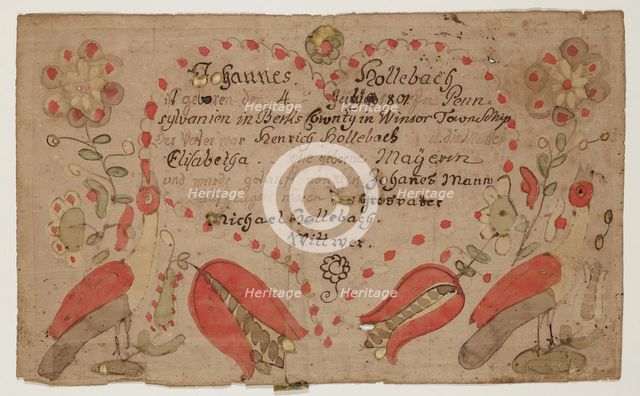 Johannes Hollebach
ist geboren den 4 1801 in Penn-
sylvanien in Berks County in Winsor Township
Der Vater war Henrich Hollebach die Mutter
Elisabetha. eine geborne Mayerin
und wurde Johanes Mann
Grosvater
Michael Hollebach.
Wittwer.
Heritage Heritage Heritage
Heritage Heritage
Heritage Heritage Heritage